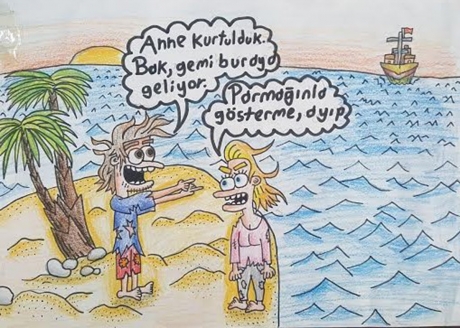 Anne Kurtulduk.
Bak, gemi buraya
geliyor.
Parmağınla
gösterme, ayıp